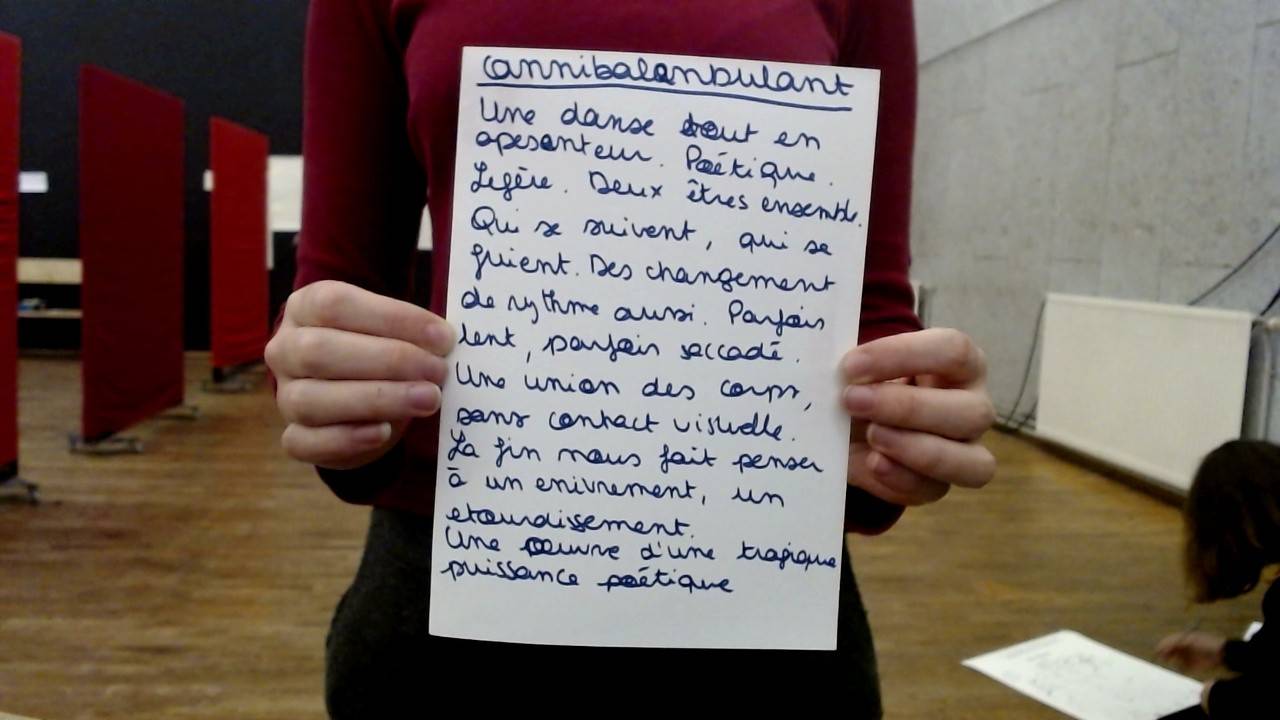 Cannibalanbulant
Une danse tout en
apesanteur. Poétique.
Legère. Deux êtres ensemble.
Qui se suivent, qui se
fuient. Des changement
de rythme aussi. Parfois
lent, parfois saccadé.
Une union des corps,
sans contact visuelle.
La fin nous fait penser
à un enivrement, un
etourdissement.
Une œuvre d'une tragique
puissance poétique